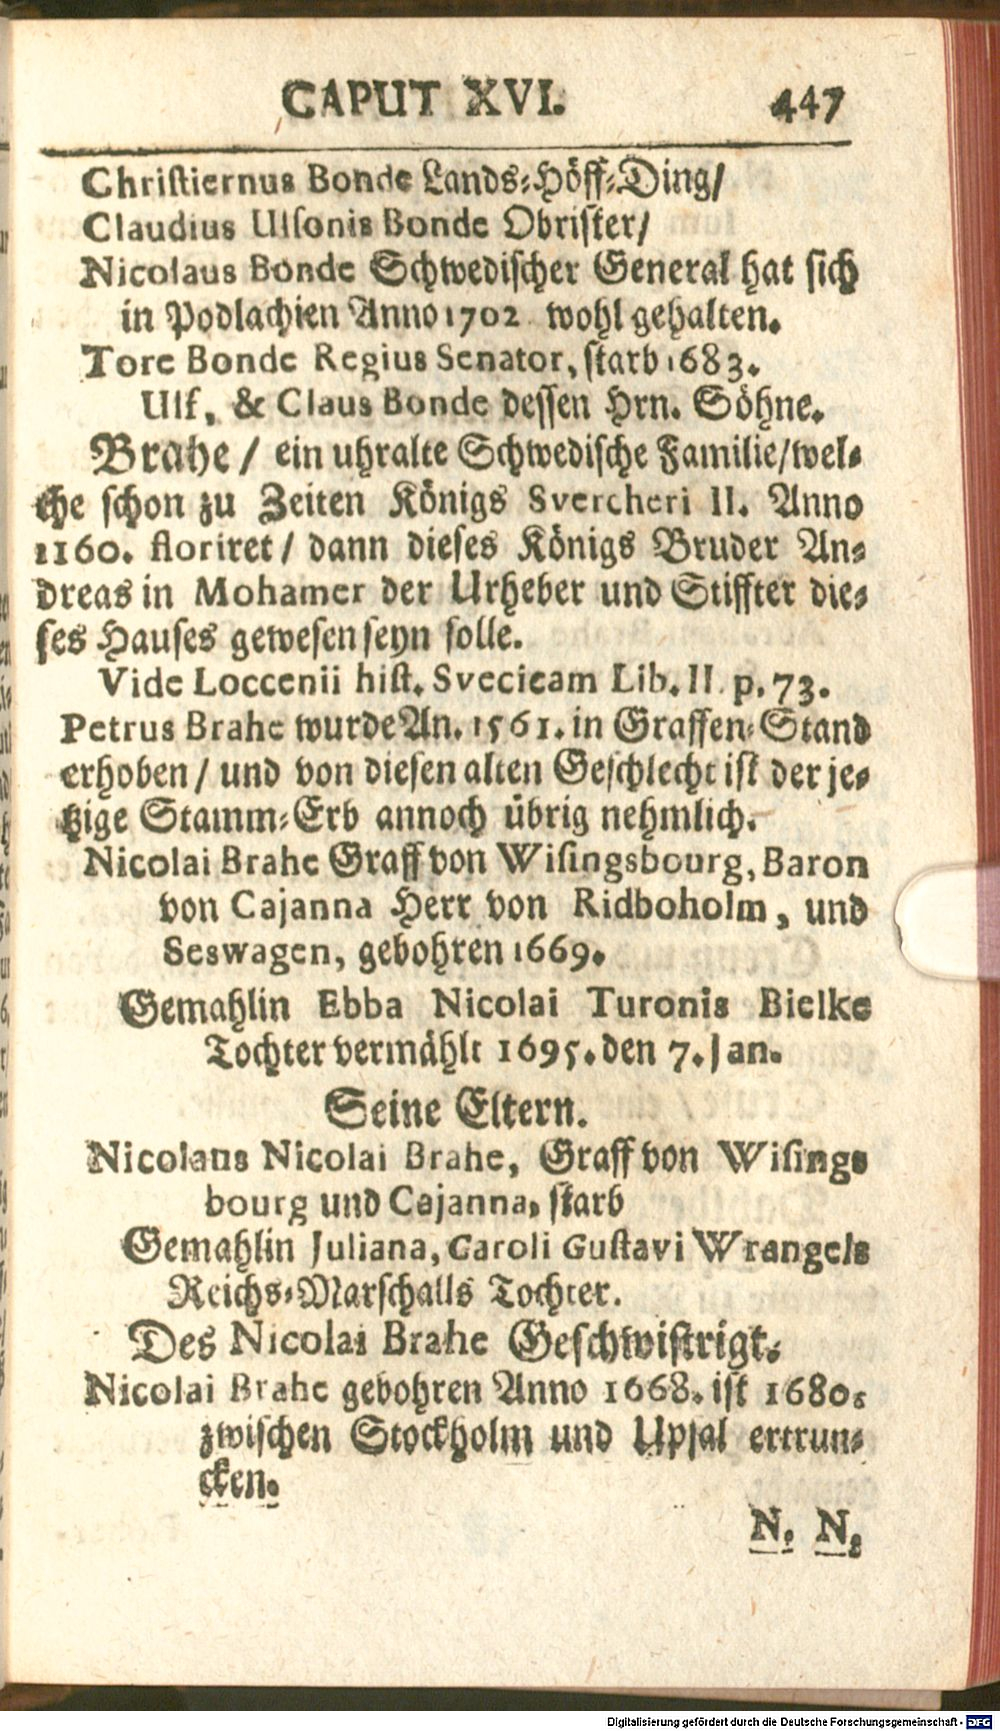 CAPUT XVI. 447
Christiernus Bonde Lands-Höff-Ding/
Claudius Ulsonis Bonde Obrister/
Nicolaus Bonde Schwedischer General hat sich
in Podlachien Anno 1702 wohl gehalten.
Tore Bonde Regius Senator, starb 1683.
Ulf, & Claus Bonde dessen Hrn. Söhne.
Brahe / ein uhralte Schwedische Familie/wel-
che schon zu Zeiten Königs Svercheri II. Anno
1160. floriret / dann dieses Königs Bruder An-
dreas in Mohamer der Urheber und Stiffter die-
ses Hauses gewesen seyn solle.
Vide Loccenii hist. Svecicam Lib. II. p. 73.
Petrus Brahe wurde An. 1561. in Graffen-Stand
erhoben / und von diesen alten Geschlecht ist der je-
tzige Stamm-Erb annoch übrig nehmlich.
Nicolai Brahe Graff von Wisingsbourg, Baron
von Cajanna Herr von Ridboholm, und
Seswagen, gebohren 1669.
Gemahlin Ebba Nicolai Turonis Bielke
Tochter vermählt 1695. den 7. Jan.
Seine Eltern.
Nicolaus Nicolai Brahe, Graff von Wisings
bourg und Cajanna, starb
Gemahlin Juliana, Caroli Gustavi Wrangels
Reichs-Marschalls Tochter.
Des Nicolai Brahe Geschwistrigt.
Nicolai Brahe gebohren Anno 1668. ist 1680.
zwischen Stockholm und Upsal ertrun-
cken.
N. N.
Digitalisierung gefördert durch die Deutsche Forschungsgemeinschaft - DFG